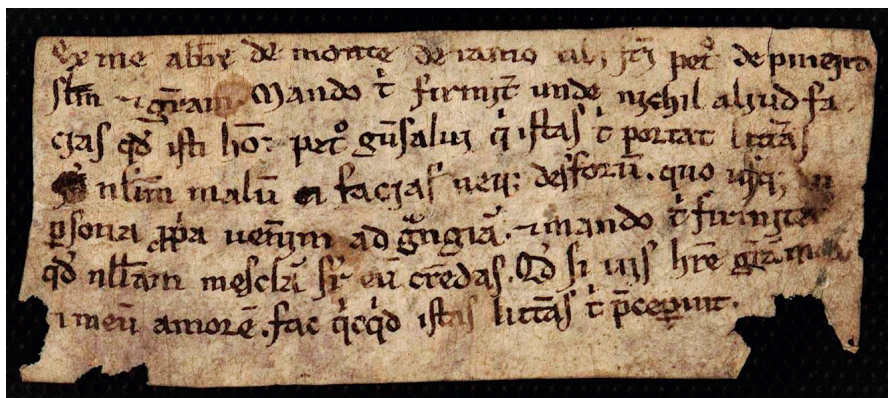 Ex me abbe de monte de ramo petꝰ de pineira
slm̄ ⁊ gr̄am. Mando t̉ firmit̉ unde nichil aliud fa
cias qd̄ isti hōi petꝰ gūsalui q̉ istas t̉ portat litt̄as
nllm̄ malū ei facias neqꝫ desforū. quo usqꝫ
ꝑsona ꝓpa ueniam ad ⁊ mando t̉ firmite
qd̄ nllam mesclā sr̄ eū credas. Qd̄ si uis hr̄e gr̄am
⁊ meū amorē. fac q̉cq̉d istas litt̄as t̉ p̄ceꝑint.